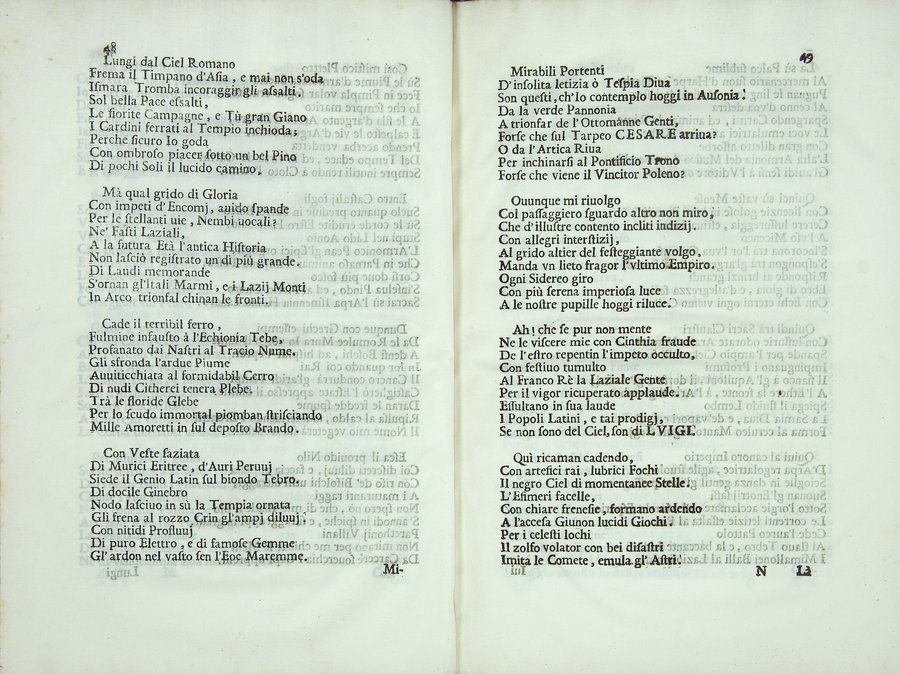 48
Lungi dal Ciel Romano
Frema il Timpano d'Aſia , e mai non s'oda
Iſmara Tromba incoraggir gli aſſalti,
Sol bella Pace eſalti,
Le fiorite Campagne , e Tù gran Giano
I Cardini ferrati al Tempio inchioda;
Perche ſicuro Io goda
Con ombroſo piacer ſotto un bel Pino
Di pochi Soli il lucido camino.
Mà qual grido di Gloria
Con impeti d'Encomj, auido ſpande
Per le ſtellanti uie , Nembi uocali?
Ne' Faſti Laziali,
A la futura Età l'antica Hiſtoria
Non laſciò regiſtrato un di più grande.
Di Laudi memorande
S'ornan gl'Itali Marmi, e i Lazij Monti
In Arco trionfal chinan le fronti.
Cade il terribil ferro ,
Fulmine infauſto à l'Echionia Tebe,
Profanato dai Naſtri al Tracio Nume.
Gli sfronda l'ardue Piume
Auuiticchiata al formidabil Cerro
Di nudi Citherei tenera Plebe.
Trà le floride Glebe
Per lo ſcudo immortal piomban ſtriſciando
Mille Amoretti in ſul depoſto Brando.
Con Veſte ſaziata
Di Murici Eritree , d'Auri Peruuj
Siede il Genio Latin ſul biondo Tebro.
Di docile Ginebro
Nodo laſciuo in sù la Tempia ornata
Gli frena al rozzo Crin gl'ampj diluuj.
Con nitidi Profluuj
Di puro Elettro , e di famoſe Gemme
Gl'ardon nel vaſto ſen l'Eoe Maremme.
Mi-
49
Mirabili Portenti
D'inſolita letizia ò Teſpia Diua
Son queſti, ch'Io contemplo hoggi in Auſonia!
Da la verde Pannonia
A trionfar de l'Ottomanne Genti,
Forſe che ſul Tarpeo CESARE arriua?
O da l'Artica Riua
Per inchinarſi al Pontificio Trono
Forſe che viene il Vincitor Poleno?
Ouunque mi riuolgo
Col paſſaggiero ſguardo altro non miro,
Che d'illuſtre contento incliti indizij.
Con allegri interſtizij,
Al grido altier del feſteggiante volgo,
Manda vn lieto fragor l'vltimo Empiro.
Ogni Sidereo giro
Con più ſerena imperioſa luce
A le noſtre pupille hoggi riluce.
Ah! che ſe pur non mente
Ne le viſcere mie con Cinthia fraude
De l'eſtro repentin l'impeto occulto,
Con feſtiuo tumulto
Al Franco Rè la Laziale Gente
Per il vigor ricuperato applaude.
Eſſultano in ſua laude
I Popoli Latini , e tai prodigj,
Se non ſono del Ciel, ſon di LVIGI.
Quì ricaman cadendo,
Con artefici rai , lubrici Fochi
Il negro Ciel di momentance Stelle.
L'Efimeri facelle,
Con chiare freneſie , formano ardendo
A l'acceſa Giunon lucidi Giochi.
Per i celeſti lochi
Il zolfo volator con bei diſaſtri
Imita le Comete , emula gl'Aſtri.
N
La